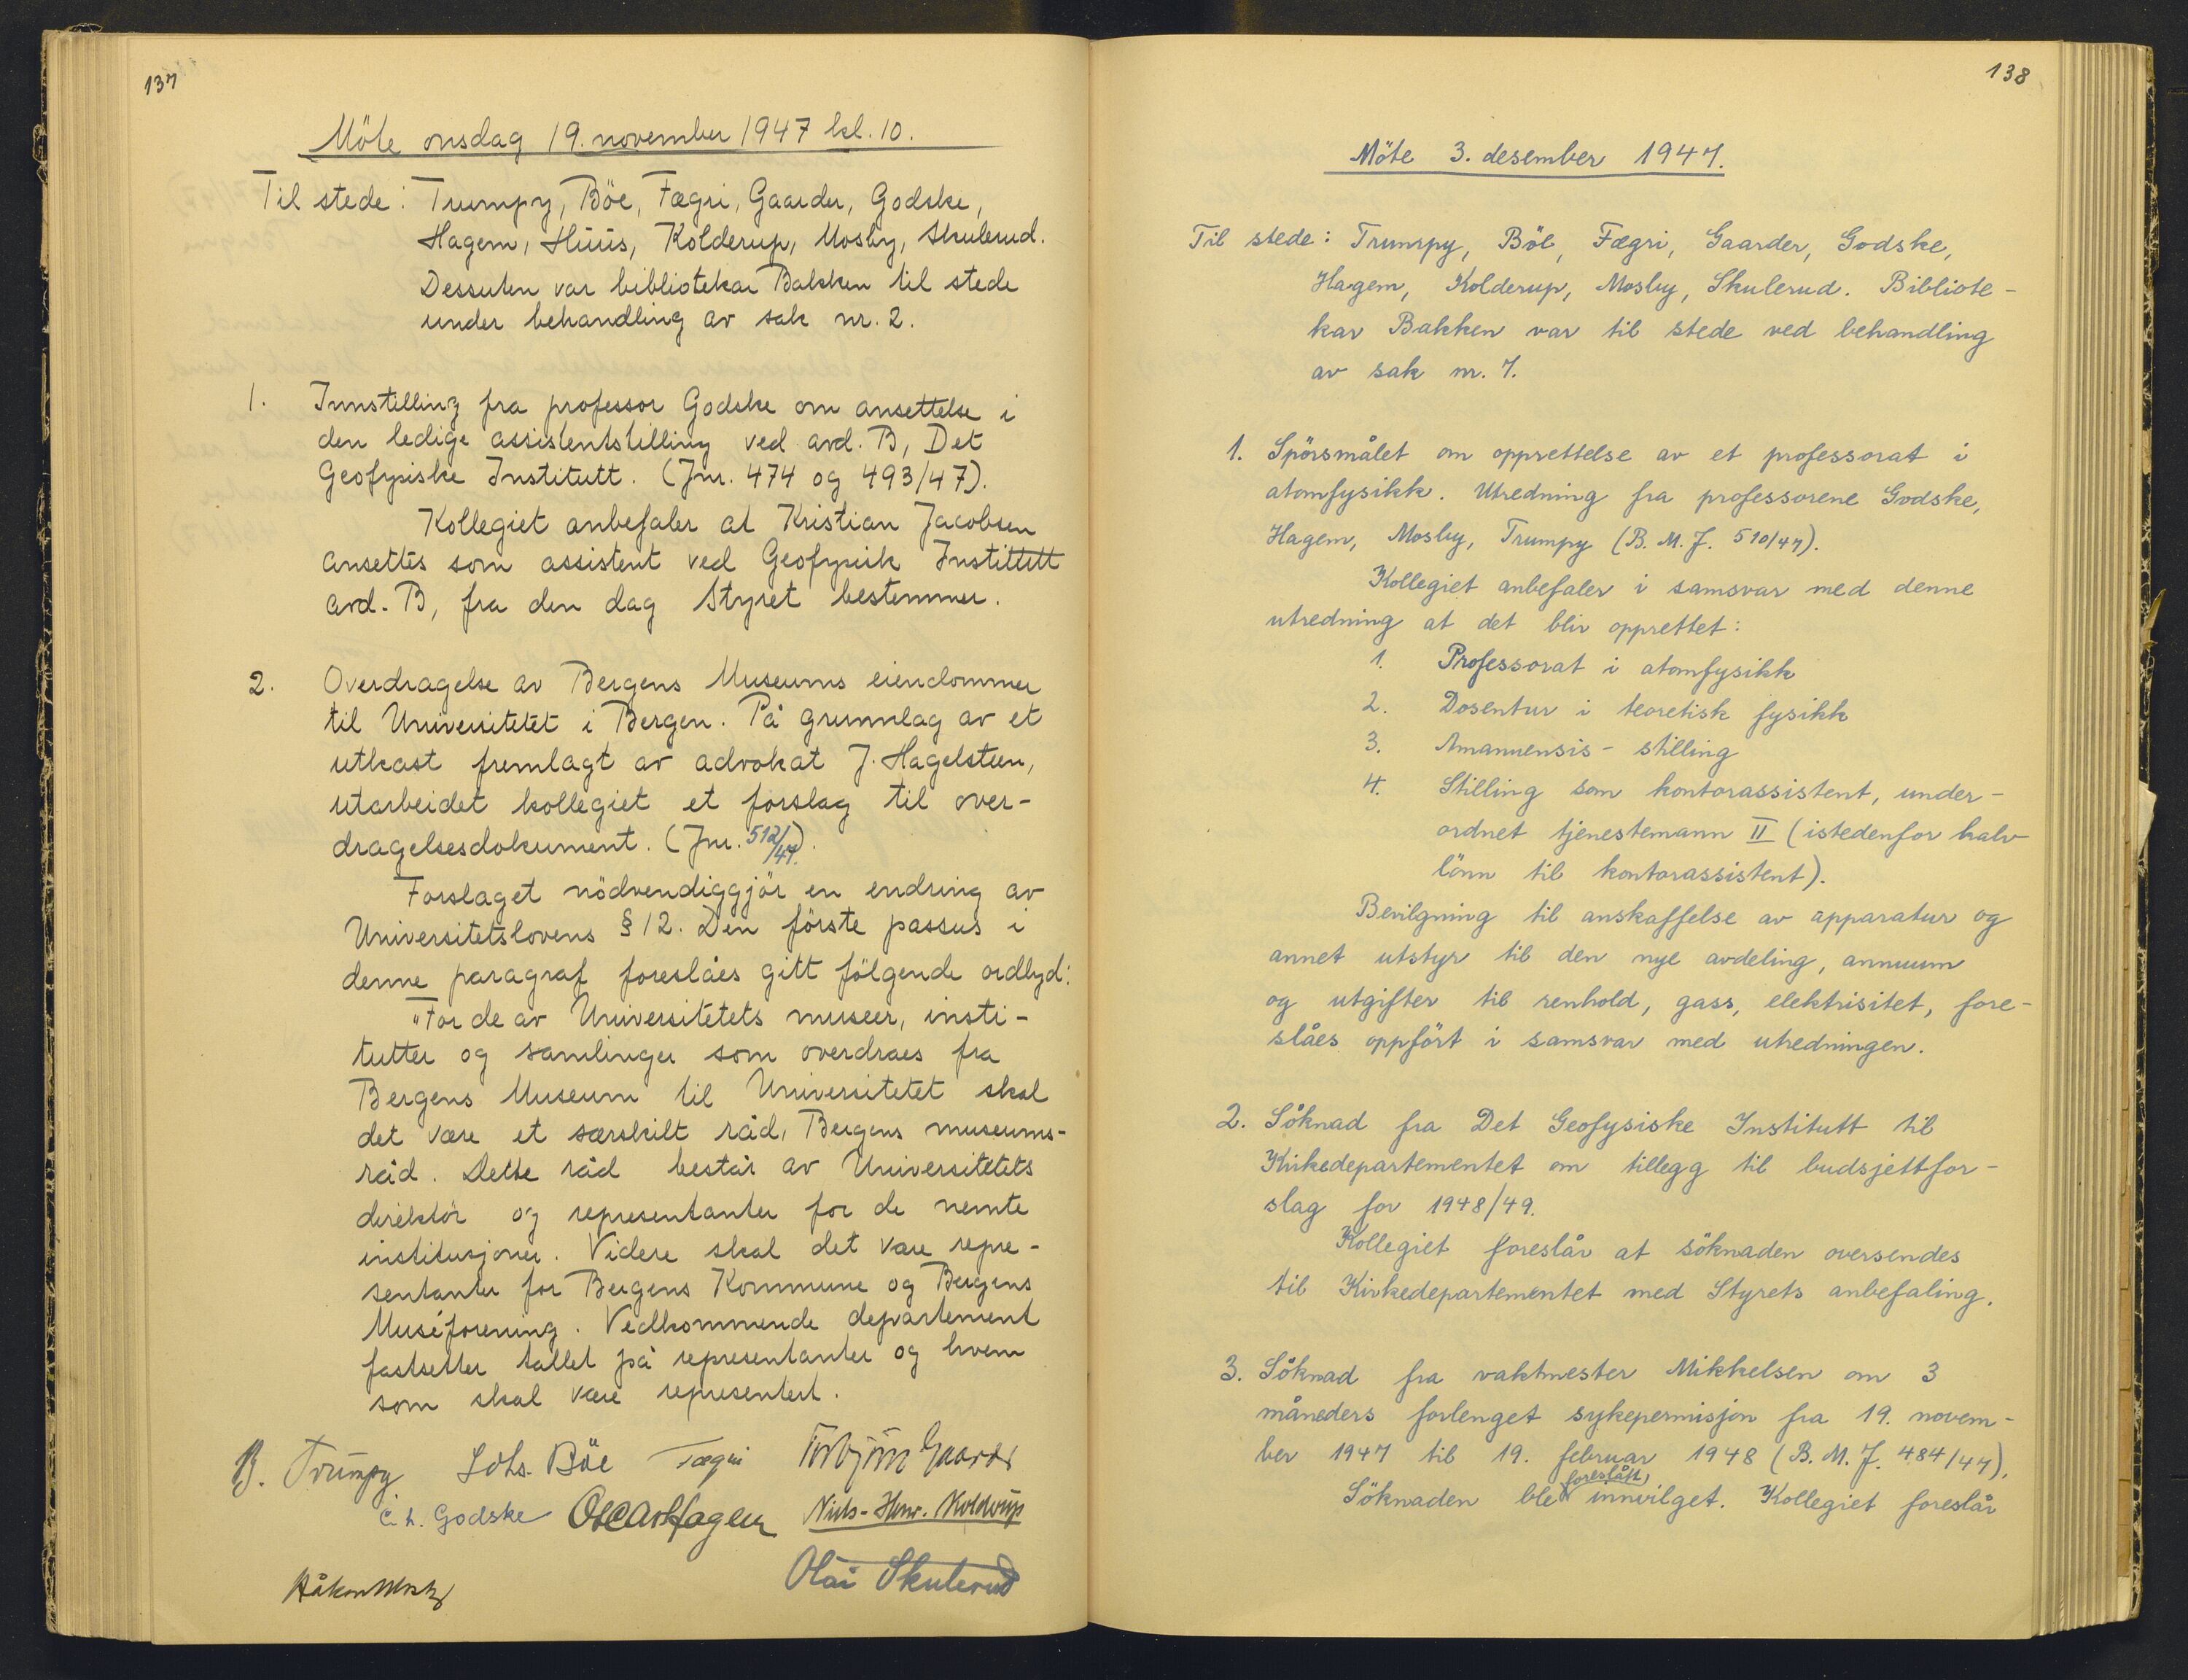 137
Möte onsdag 19. november 1947 kl. 10.
Til stede: Trumpy, Böe, Fægri, Gaarder, Godske,
Hagem, Huus, Kolderup, Mosby, Skulerud.
Dessuten var bibliotekar Bakken til stede
under behandling av sak nr. 2.
1. Innstilling fra professor Godske om ansettelse i
den ledige assistentstilling ved avd. B, Det
Geofysiske Institutt. (Jnr. 474 og 493/47).
Kollegiet anbefaler at Kristian Jacobsen
ansettes som assistent ved Geofysisk Institutt
avd. B, fra den dag Styret bestemmer.
2. Overdragelse av Bergens Museums eiendommer
til Universitetet i Bergen. På grunnlag av et
utkast fremlagt av advokat J. Hagelsteen,
utarbeidet kollegiet et forslag til over-
dragelsesdokument. (Jnr. 512/47).
Forslaget nödvendiggjör en endring av
Universitetslovens § 12. Den förste passus i
denne paragraf foreslåes gitt fölgende ordlyd:
"For de av Universitetets museer, insti-
tutter og samlinger som overdraes fra
Bergens Museum til Universitetet skal
det være et særskilt råd, Bergens museums-
råd. Dette råd består av Universitetets
direktör og representanter for de nemte
institusjoner. Videre skal det være repre-
sentanter for Bergens Kommune og Bergens
Museforening. Vedkommende departement
fastsetter tallet på representanter og hvem
som skal være representert.
B. Trumpy Johs. Böe Fægri Torbjörn Gaarder
C. L. Godske Oscar Hagem Niels-Henr. Kolderup
Håkon Mosby Olai Skulerud
138
Möte 3. desember 1947.
Til stede: Trumpy, Böe, Fægri, Gaarder, Godske,
Hagem, Kolderup, Mosby, Skulerud. Bibliote-
kar Bakken var til stede ved behandling
av sak nr. 7.
1. Spörsmålet om opprettelse av et professorat i
atomfysikk. Utredning fra professorene Godske,
Hagem, Mosby, Trumpy (B. M. J. 510/47).
Kollegiet anbefaler i samsvar med denne
utredning at det blir opprettet:
1. Professorat i atomfysikk
2. Dosentur i teoretisk fysikk
3. Amanuensis-stilling
4. Stilling som kontorassistent, under-
ordnet tjenestemann II (istedenfor halv
lönn til kontorassistent).
Bevilgning til anskaffelse av apparatur og
annet utstyr til den nye avdeling, annuum
og utgifter til renhold, gass, elektrisitet, fore-
slåes oppfört i samsvar med utredningen.
2. Söknad fra Det Geofysiske Institutt til
Kirkedepartementet om tillegg til budsjettfor-
slag for 1948/49.
Kollegiet foreslår at söknaden oversendes
til Kirkedepartementet med Styrets anbefaling.
3. Söknad fra vaktmester Mikkelsen om 3
måneders forlenget sykepermisjon fra 19. novem-
ber 1947 til 19. februar 1948 (B. M. J. 484/47).
foreslått
Söknaden ble innvilget. Kollegiet foreslår